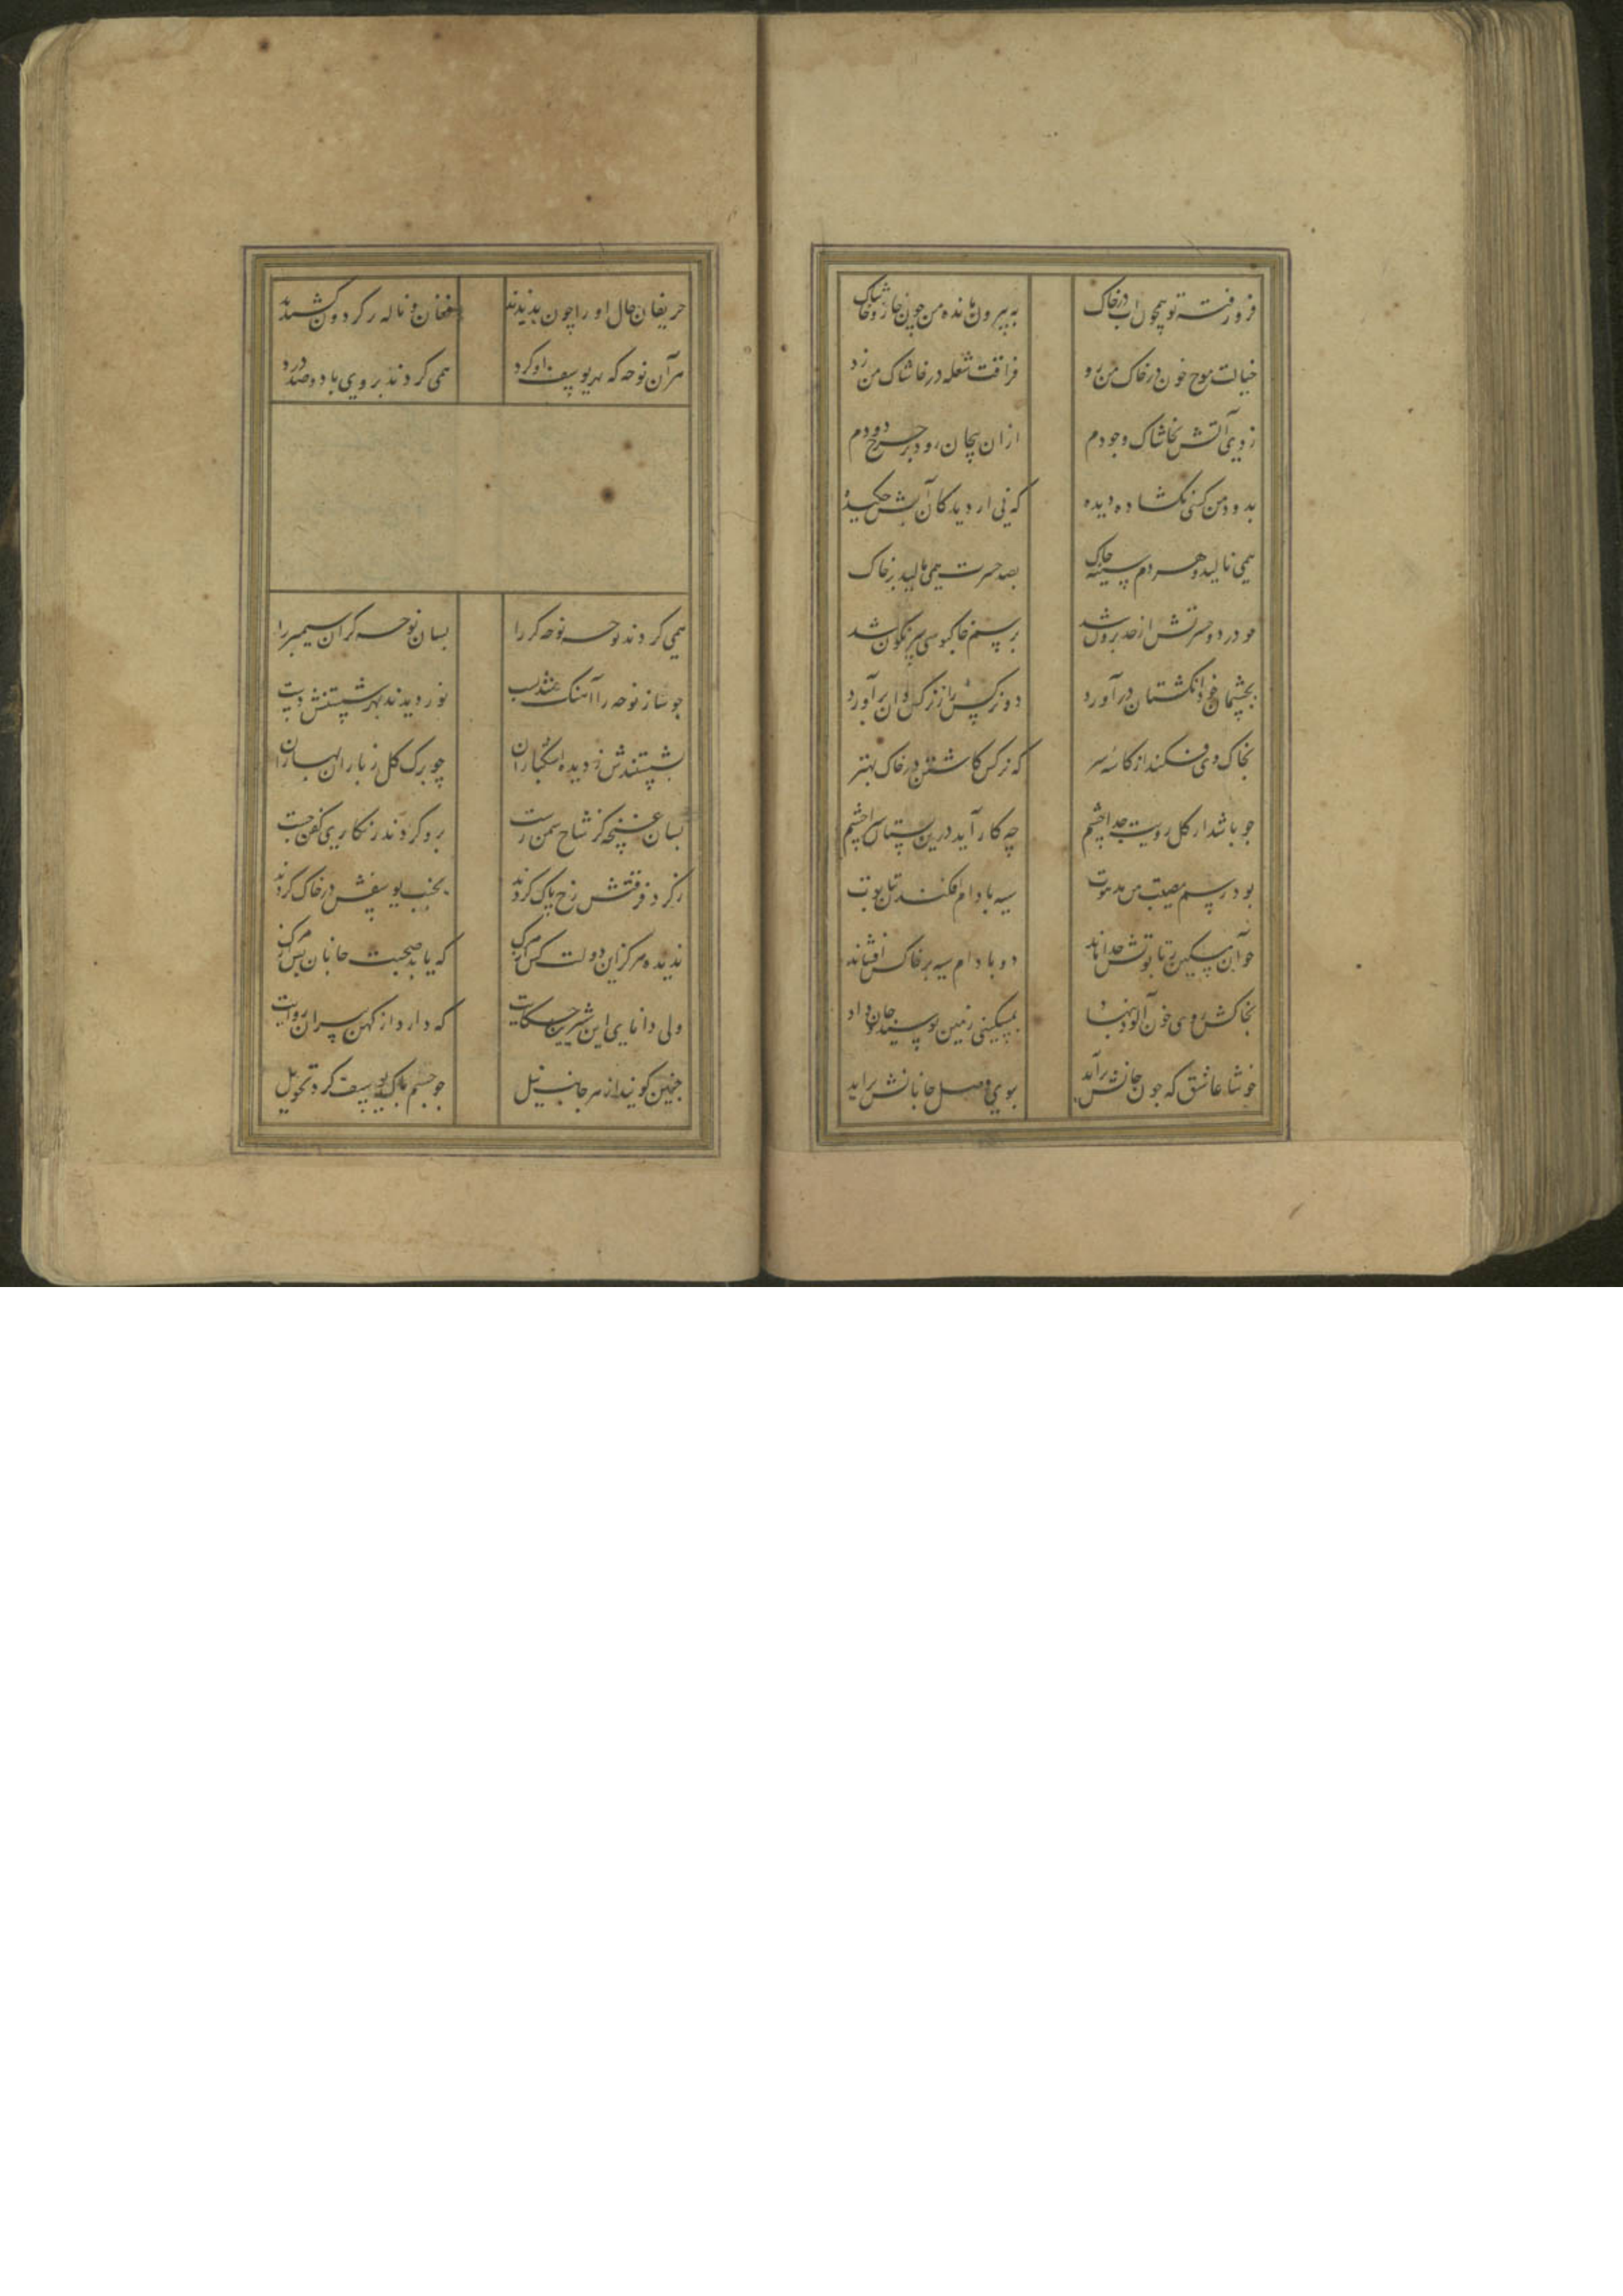 فرو رفته تو همچون آب در خاک به بیرون مانده من چون خار و خاشاک
خیالت موج خون در خاک من زد فراقت شعله در خاشاک من زد
زدی آتش بخاشاک وجودم ازان پیچان رود بر چرخ دودم
بدود من کسی نکشاده دیده که نی از دیدکان آبش چکیده
همی نالید و هر دم سینه چاک بصد حسرت همی مالید بر خاک
چو درد و حسرتش از حد برون شد برسم خاکبوسی سرنکون شد
بچشمان خود انکشتان در آورد دو نرکس را ز نرکسدان بر آورد
بخاک وی فکند از کاسه سر که نرکس کاشتن در خاک بهتر
چو باشد از کل رویت جدا چشم چه کار آید درین بستان مرا چشم
بود رسم مصیبت من مدهوت سیه بادام افکندن بتابوت
چو آن مسکین ز تابوتش جدا ماند دو بادام سیه بر خاکش افشاند
بخاکش روی خون آلود بنهاد بمسکینی زمین بوسید و جان داد
خوشا عاشق که چون جانش بر آید ببوی وصل جانانش بر آید
حریفان حال او را چون بدیدند فغان و ناله بر کردون کشیدند
هر آن نوحه که بهر یوسف او کرد همی کردند بر وی با دو صد درد
همی کردند نوحه نوحه کر را بسان نوحه کر آن سیمبر را
چو ساز نوحه را آهنک شد سست نوردیدند بهر شستنش دست
بشستندش ز دیده اشکباران چو برک کل ز باران بهاران
بسان غنچه کز شاخ سمن رست برو کردند زنکاری کفن چست
ز کرد فرقتش رخ پاک کردند بجنب یوسفش در خاک کردند
ندیده هرکز این دولت کس از مرک که یابد صحبت جانان پس از مرک
ولی دانای این شیرین حکایت که دارد از کهن پیران روایت
چنین کوید از هر جانب نیل چو جسم پاک یوسف کرد تحویل